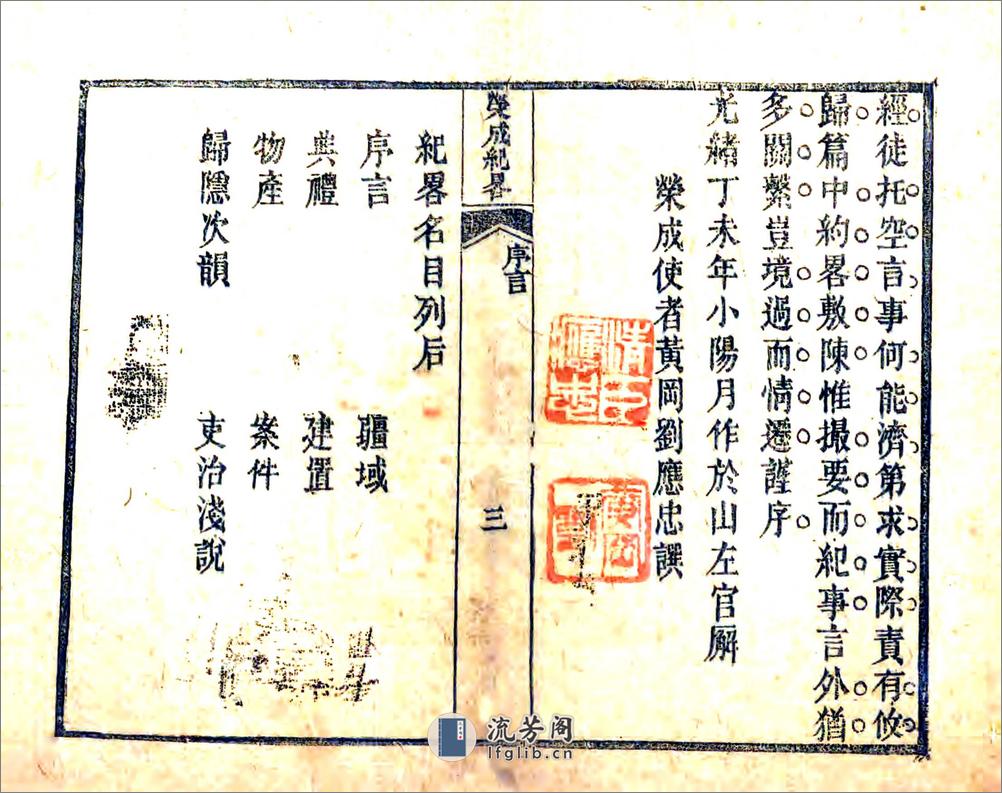 經徒托空言事何能濟第求實際責有攸
歸篇中約畧敷陳惟撮要而紀事言外猶
多關繫豈境過而情遷謹序
光緒丁未年小陽月作於山左官廨
榮成使者黃岡劉應忠譔
榮成紀畧
序言
三
紀畧名目列后
序言
疆域
典禮
建置
物產
案件
歸隱次韻
吏治淺說
流芳阁
lfglib.cn